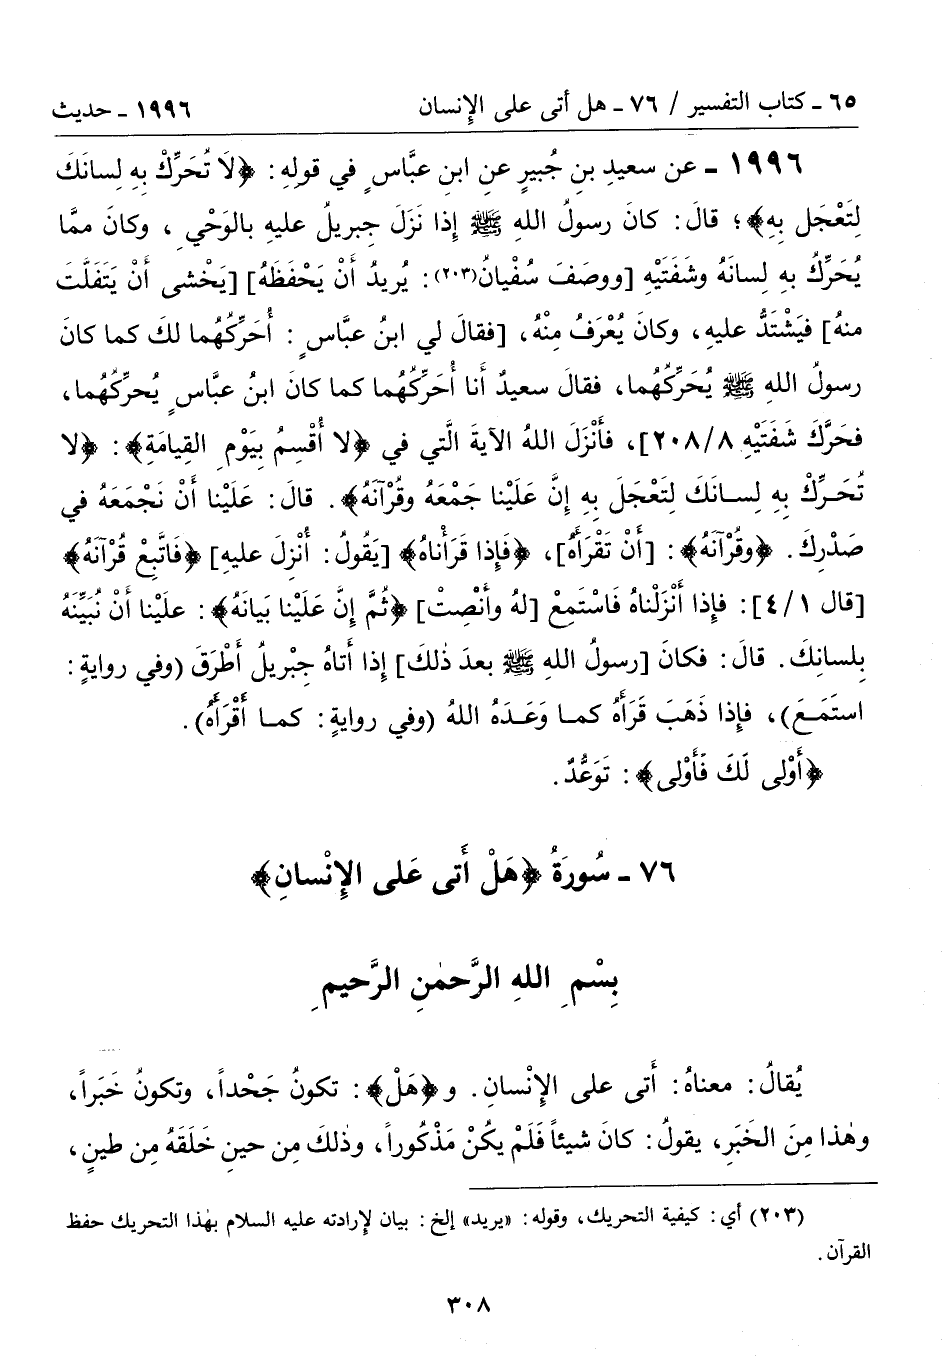 ٦٥ ـ كتاب التفسير / ٧٦ ـ هل أتى على الإنسان
١٩٩٦ ـ حديث
١٩٩٦ ـ عن سعيدِ بنِ جُبيرٍ عنِ ابنِ عبَّاسٍ في قولِهِ: ﴿لَا تُحَرِّكْ بهِ لِسانَكَ
لِتَعْجَل بِهِ﴾؛ قالَ: كانَ رسولُ اللهِ ﷺ إذا نَزَلَ جِبريلُ عليهِ بالوَحْيِ، وكانَ ممَّا
يُحَرِّكُ به لسانَهُ وشَفَتَيْهِ [ووصَفَ سُفْيانُ(٢٠٣): يُريدُ أَنْ يَحْفَظَهُ] [يَخْشى أَنْ يَتَفَلَّتَ
منهُ] فيَشْتَدُّ عليهِ، وكانَ يُعْرَفُ مِنْهُ، [فقالَ لي ابنُ عبَّاسٍ: أُحَرِّكُهُما لكَ كما كانَ
رسولُ اللهِ ﷺ يُحَرِّكُهُما، فقالَ سعيدٌ أَنا أُحَرِّكُهُما كما كانَ ابنُ عبَّاسٍ يُحركُهُما،
فحَرَّكَ شَفَتَيْهِ ٢٠٨/٨]، فأَنْزَلَ اللهُ الآيةَ الَّتي في ﴿لا أُقْسِمُ بِيَوْمِ القِيامَةِ﴾: ﴿لا
تُحَرِّكْ بِهِ لِسانَكَ لِتَعْجَلَ بِهِ إِنَّ عَلَيْنا جَمْعَهُ وقُرْآنَهُ﴾. قالَ: عَلَيْنا أَنْ نَجْمَعَهُ في
صَدْرِكَ. ﴿وقُرْآنَهُ﴾: [أَنْ تَقْرَأَهُ]، ﴿فَإِذا قَرَأْناهُ﴾ [يَقُولُ: أُنْزِلَ عليهِ] ﴿فَاتَّبِعْ قُرْآنَهُ﴾
[قال ٤/١]: فإذا أَنْزَلْناهُ فَاسْتَمِعْ [لهُ وأَنْصِتْ] ﴿ثُمَّ إِنَّ عَلَيْنا بَيانَهُ﴾: علَيْنا أَنْ نُبَيِّنَهُ
بِلسانِكَ. قالَ: فكانَ [رسولُ اللهِ ﷺ بعدَ ذٰلكَ] إذا أَتاهُ جِبْريلُ أَطْرَقَ (وفي روايةٍ:
استَمَعَ)، فإذا ذَهَبَ قَرَأَهُ كما وَعَدَهُ اللهُ (وفي روايةٍ: كما أَقْرَأَهُ).
﴿أَوْلى لَكَ فَأَوْلى﴾: تَوَعُّدٌ.
٧٦ ـ سُورَةُ ﴿هَلْ أَتى عَلى الإِنْسانِ﴾
بِسْمِ اللهِ الرَّحمٰنِ الرَّحيمِ
يُقالُ: معناهُ: أَتى على الإِنْسانِ. و﴿هَلْ﴾: تكونُ جَحْداً، وتكونُ خَبَراً،
وهٰذا مِنَ الخَبَرِ، يقولُ: كانَ شيئاً فَلَمْ يكُنْ مَذْكُوراً، وذٰلكَ مِن حينِ خَلَقَهُ مِن طينٍ،
(٢٠٣) أي: كيفية التحريك، وقوله: «يريد» إلخ: بيان لإرادته عليه السلام بهٰذا التحريك حفظ
القرآن.
٣٠٨